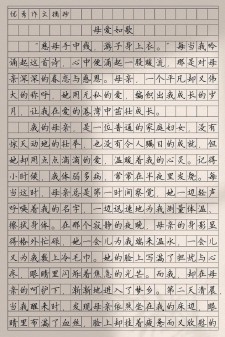 优秀作文摘抄
母爱如歌
“慈母手中线，游子身上衣。”每当我吟
诵起这首诗，心中便涌起一股暖流，那是对母
亲深深的眷恋与感恩。母亲，一个平凡却又伟
大的称呼，她用无私的爱，编织出我成长的岁
月，让我在爱的港湾中茁壮成长。
我的母亲，是一位普通的家庭妇女，没有
惊天动地的壮举，也没有令人瞩目的成就，但
她却用点点滴滴的爱，温暖着我的心灵。记得
小时候，我体弱多病，常常在半夜里发烧。每
当这时，母亲总是第一时间察觉，她一边轻声
呼唤着我的名字，一边迅速地为我测量体温、
擦拭身体。在那个寂静的夜晚，母亲的身影显
得格外忙碌，她一会儿为我端来温水，一会儿
又为我敷上冷毛巾。她的脸上写满了担忧与心
疼，眼睛里闪烁着焦急的光芒。而我，却在母
亲的呵护下，渐渐地进入了梦乡。第二天清晨，
当我醒来时，发现母亲依然坐在我的床边，眼
睛里布满了血丝，脸上却挂着疲惫而又欣慰的